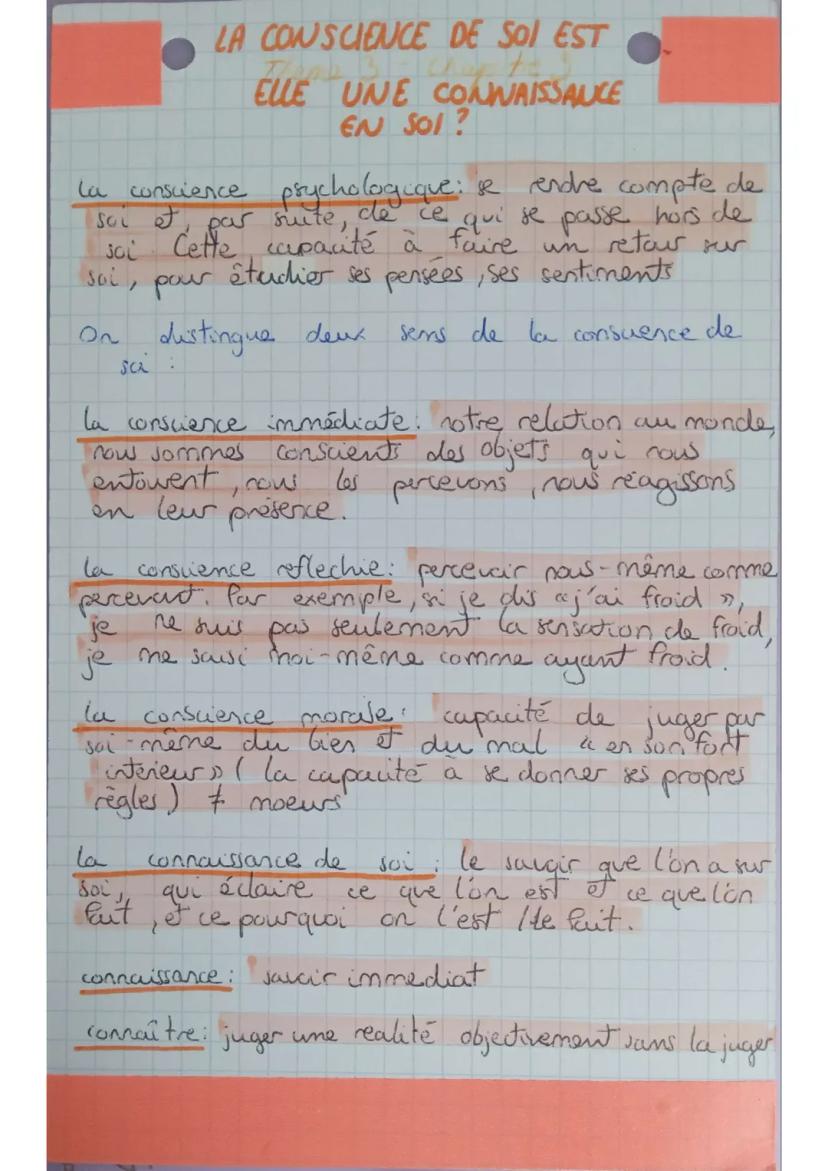 LA CONSCIENCE DE SOI EST
Thème 3 - Chapitre 3
ELLE UNE CONNAISSANCE
EN SOI ?
la conscience psychologique : se rendre compte de
soi et, par suite, de ce qui se passe hors de
soi Cette capacité à faire un retour sur
soi, pour étudier ses pensées, ses sentiments
On distingue deux sens de la conscience de
soi :
la conscience immédiate : notre relation au monde,
nous sommes conscients des objets qui nous
entourent, nous les percevons, nous réagissons
en leur présence.
la conscience reflechie : percevoir nous-même comme
percevant. Par exemple, si je dis « j'ai froid »,
je ne suis pas seulement la sensation de froid,
je me saisi moi-même comme ayant froid.
la conscience morale : capacité de juger par
soi-même du bien et du mal « en son fort
intérieur » ( la capacité à se donner ses propres
règles ) ≠ moeurs
la connaissance de soi : le savoir que l'on a sur
soi, qui éclaire ce que l'on est et ce que l'on
fait, et ce pourquoi on l'est / le fait.
connaissance : savoir immediat
connaître : juger une realité objectivement sans la juger